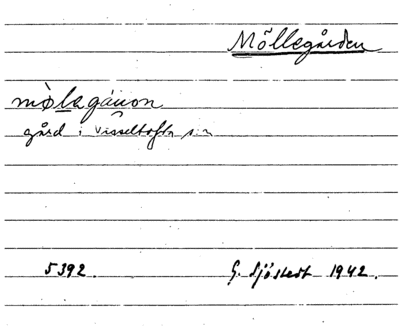 Möllegården
mø̀lagáu̯on
gård i Visseltofta s:n
5392. G. Sjöstedt 1942.